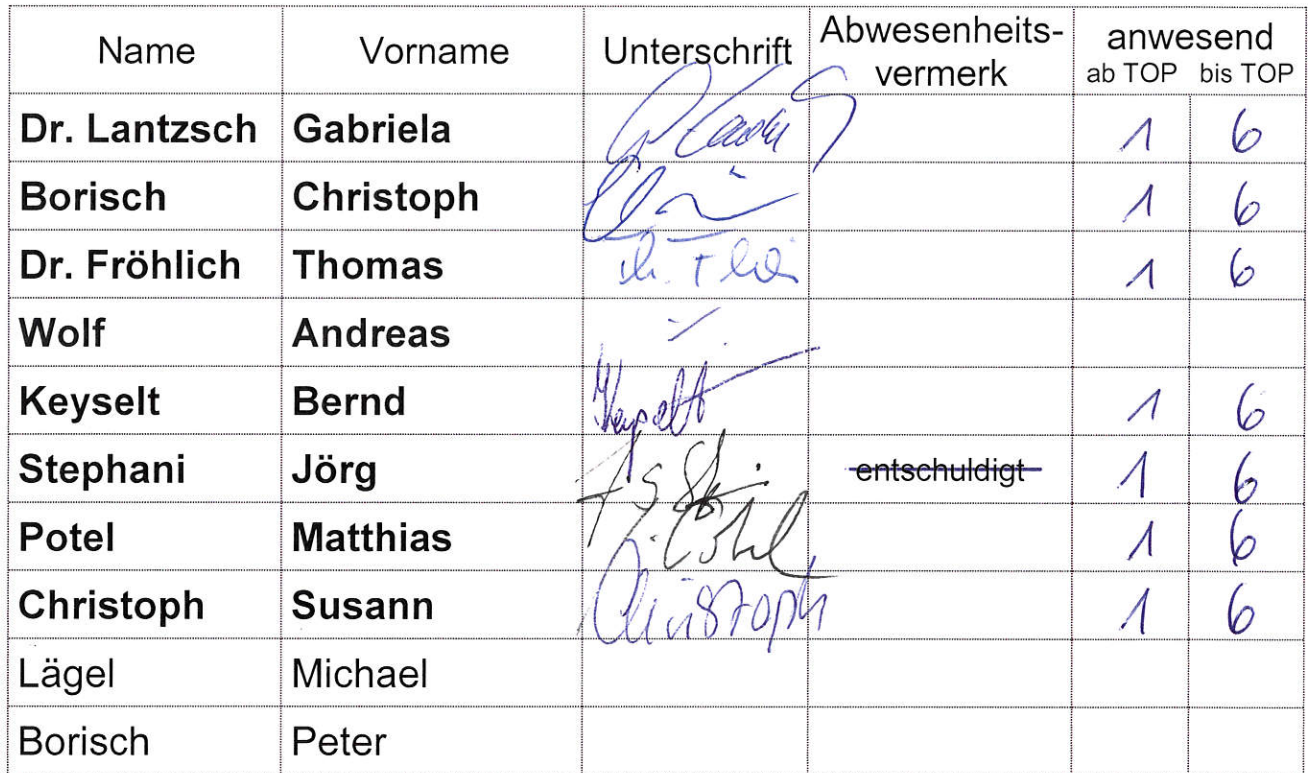 Name Vorname Unterschrift Abwesenheits-vermerk anwesend
ab TOP bis TOP
Dr. Lantzsch Gabriela 1 6
Borisch Christoph 1 6
Dr. Fröhlich Thomas 1 6
Wolf Andreas
Keyselt Bernd Keyselt 1 6
Stephani Jörg entschuldigt 1 6
Potel Matthias 1 6
Christoph Susann Christoph 1 6
Lägel Michael
Borisch Peter